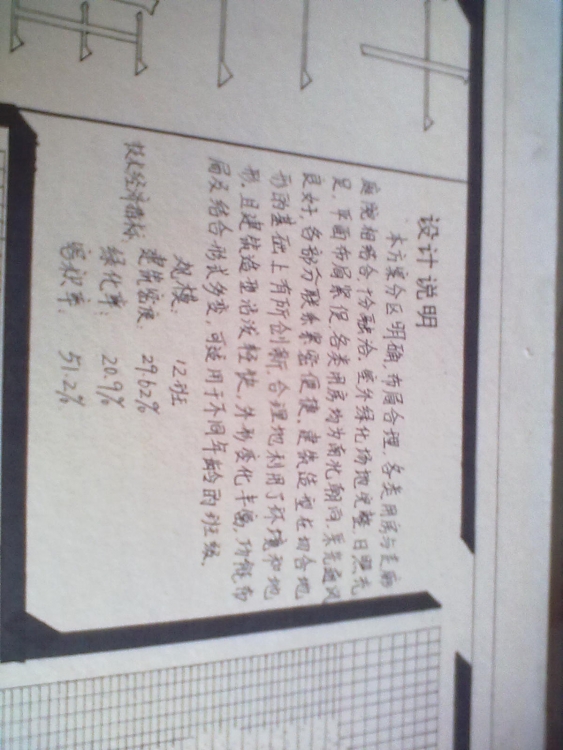 设计说明
本方案分区明确,布局合理.各类用房与走廊
庭院相结合,十分融洽.室外绿化场地完整.日照充
足.平面布局紧促.各类用房均为南北朝向.采光通风
良好,各部分联系紧密便捷.建筑造型在切合地
形的基础上有所创新.合理地利用了环境和地
形.且建筑造型活泼轻快.外形变化丰富,功能布
局及结合形式多变,可适用于不同年龄的班级.
规模: 12班
建筑密度 29.62%
技术经济指标 绿化率: 20.9%
容积率: 51.2%